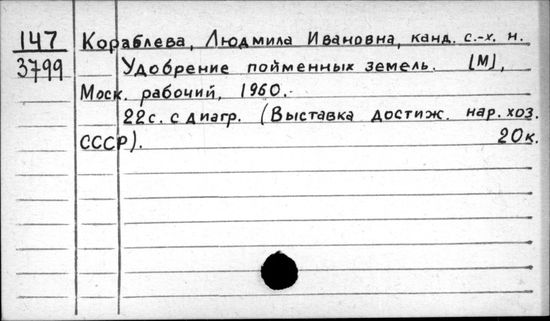 147 Кораблева, Людмила Ивановна, канд. с.-х. н.
3799 Удобрение пойменных земель. [М],
Моск. рабочий, 1960.
22с. с диагр. (Выставка достиж. нар. хоз.
СССР). 20к.